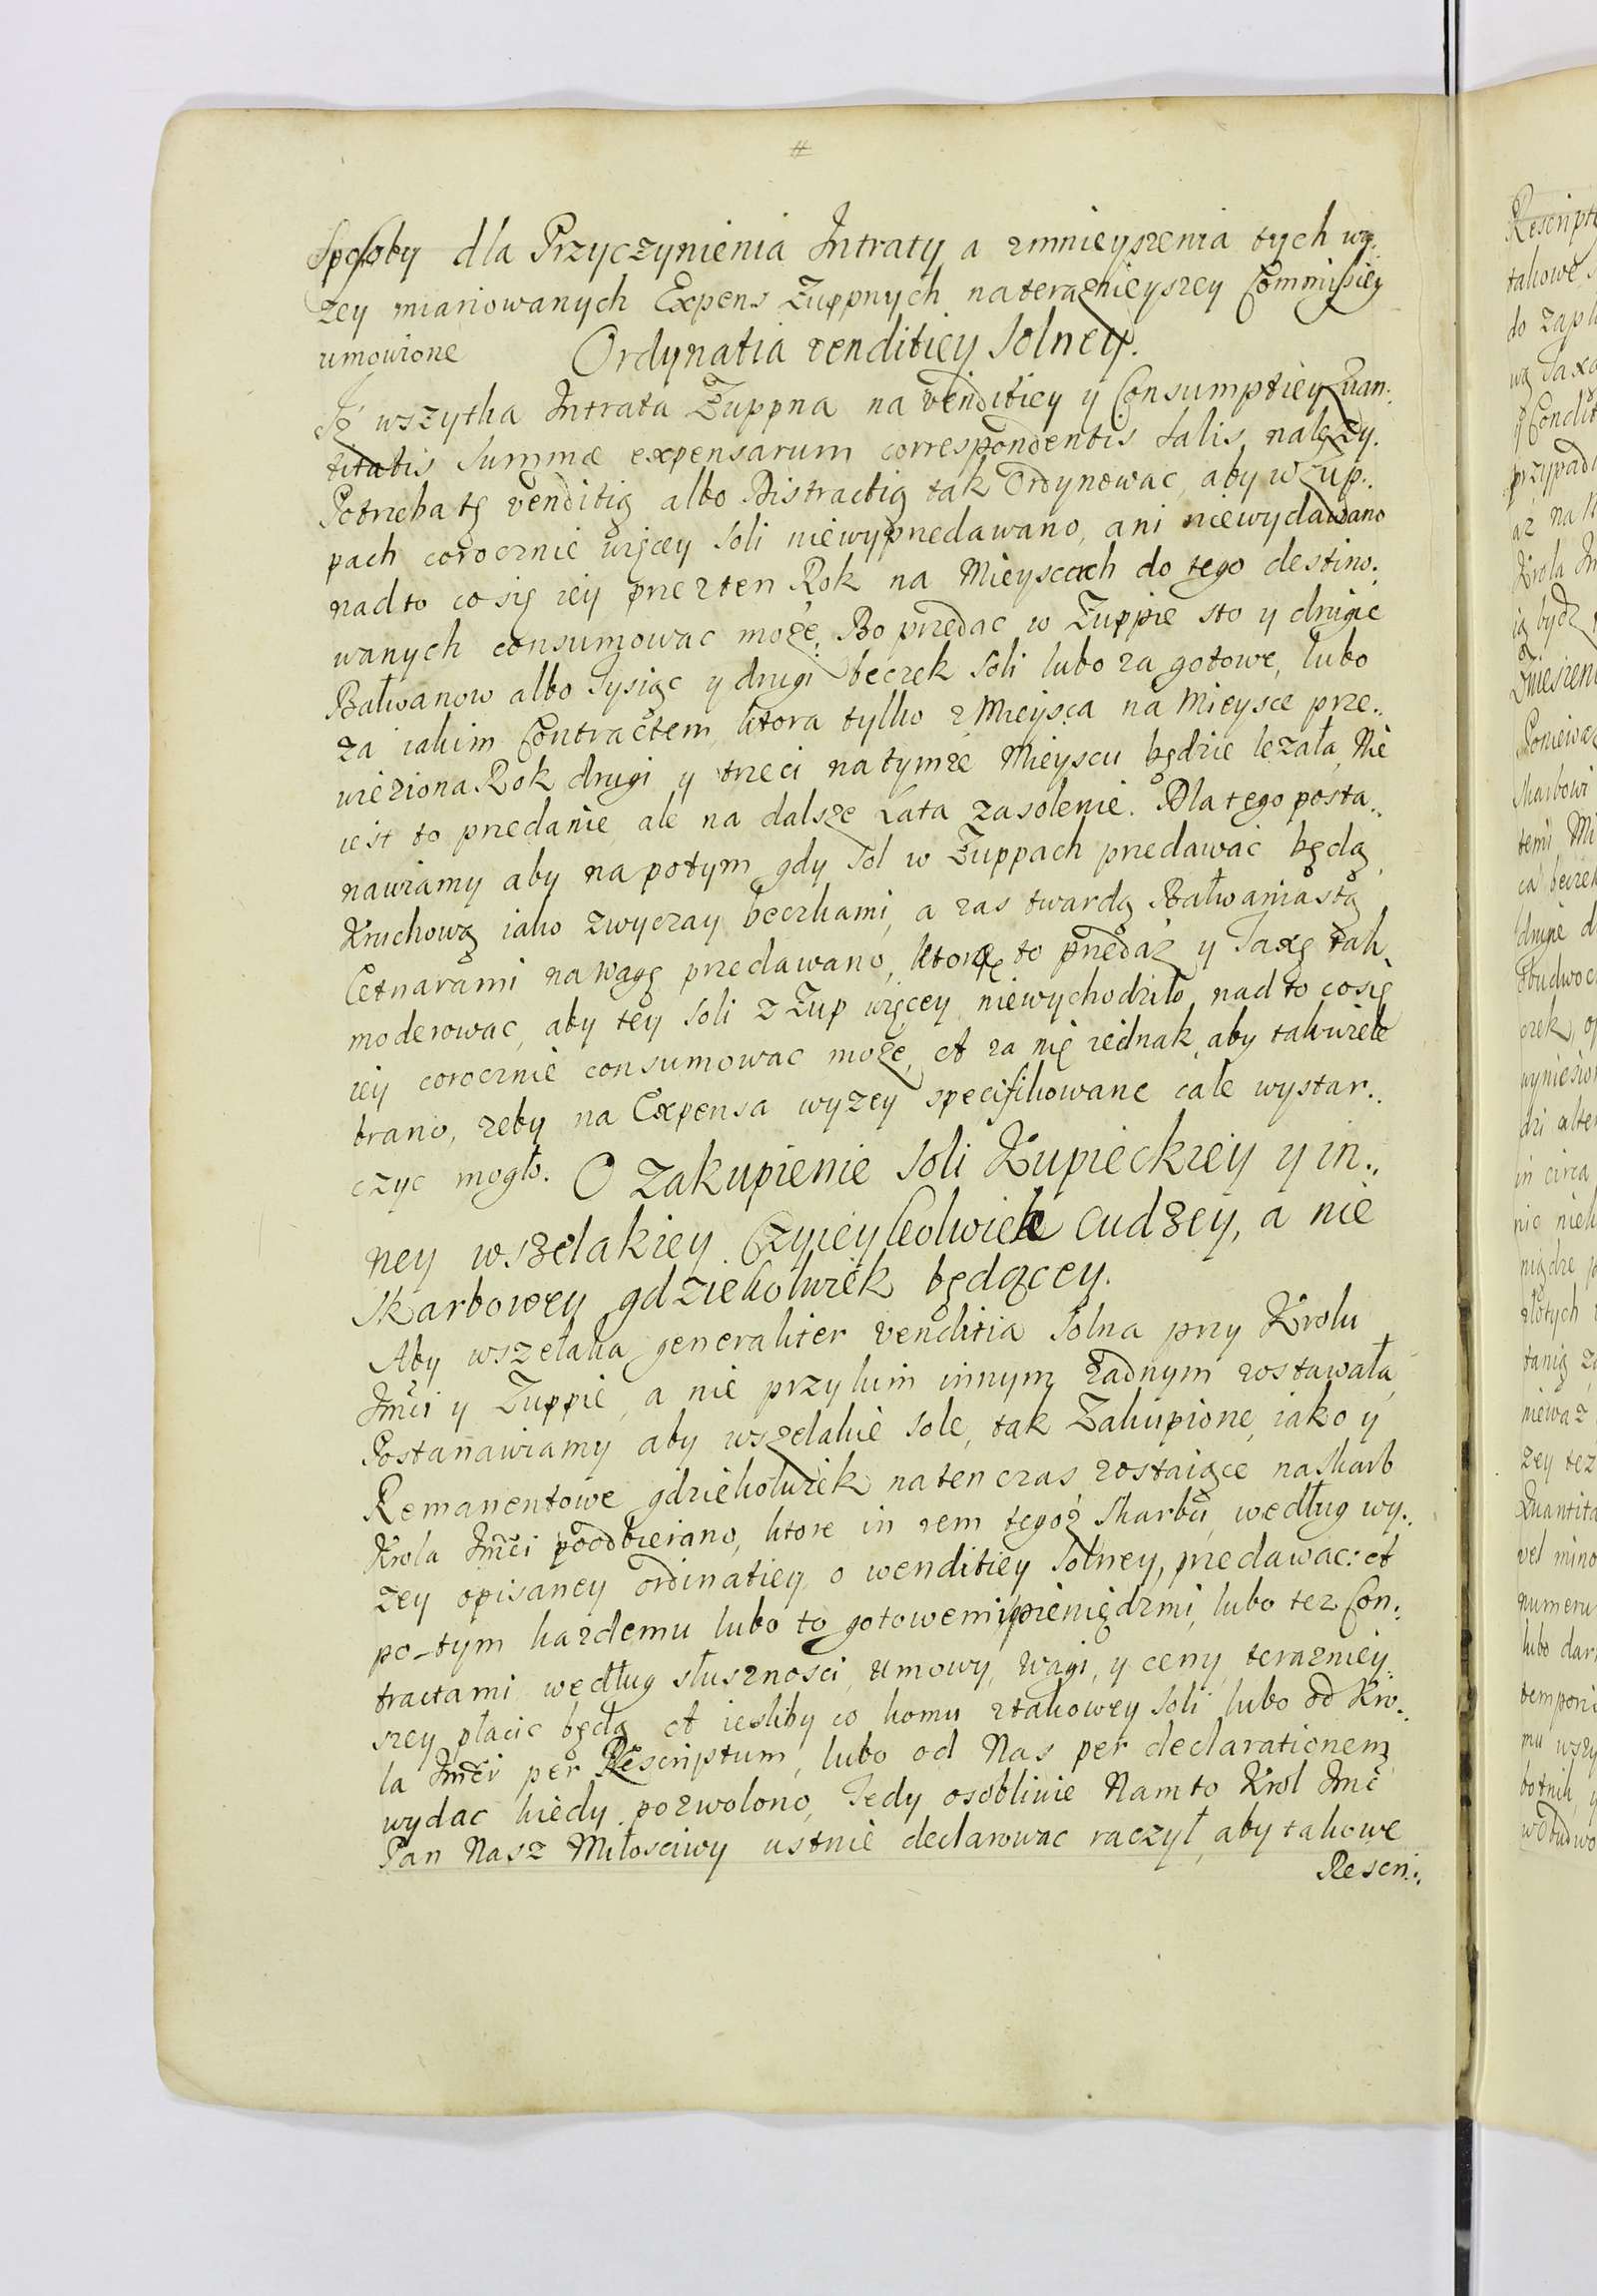 #
Sposoby dla Przyczynienia Intraty a zmnieyszenia tych wy:
zey mianowanych Expens Zuppnych na teraznieyszey Commissiey
umowione Ordynatia venditiey Solney.
Iż wszytka Intrata Zuppna na venditiey y Consumptiey Quan:
titatis Summæ expensarum correspondentis Salis nalęzy.
Potrzeba tę venditią albo Distractią tak Ordynowac, aby w Zup:
pach corocznie więcey Soli niewyprzedawano, ani niewydawano
nad to co się iey przez ten Rok na Mieyscach do tego destino:
wanych consumowac może. Bo przedac w Zuppie sto y drugie
Bałwanow albo Tysiąc y drugi beczek Soli lubo za gotowe, lubo
za iakim Contractem, ktora tylko z Mieysca na Mieysce prze:
wieziona Rok drugi y trzeci na tymze Mieyscu będzie lezała, Nie
iest to przedanie ale na dalsze Lata zasolenie. Dla tego posta:
nawiamy aby na potym gdy Sol w Zuppach przedawać będą,
Kruchową iako zwyczay beczkami, a zas twardą Bałwaniastą
Cetnarami na wagę przedawano, ktorą to przedaż y Taxę tak
moderowac, aby tey Soli z Zup więcey niewychodziło nad to co się
iey corocznie consumowac może, et za nię iednak aby takwiele
brano, zeby na Expensa wyzey specifikowane całe wystar:
czyc mogło. O Zakupienie Soli Kupieckiey y in:
ney wszelakiey Czyieykolwiek cudzey, a nie
Skarbowey gdziekolwiek będącey.
Aby wszelaka generaliter venditia Solna przy Krolu
Jmci y Zuppie, a nie przy kim innym żadnym zostawała,
Postanawiamy aby wszelakie Sole, tak Zakupione, iako y
Remanentowe gdziekolwiek na ten czas zostaiące na Skarb
Krola Jmci poodbierano, ktore in rem tegoż Skarbu, według wy:
zey opisaney ordinatiey o wenditiey Solney, przedawac: et
po-tym kazdemu lubo to gotowemi pieniędzmi, lubo tez Con:
tractami według słusznosci, Umowy, wagi, y ceny terazniey:
szey płacic będą et iesliby co komu z takowey Soli lubo od Kro:
la Jmci per Rescriptum, lubo od Nas per declarationem
wydac kiedy pozwolono, Tedy osobliwie Nam to Krol Jmc
Pan Nasz Miłosciwy ustnie declarowac raczył, aby takowe
Rescri: